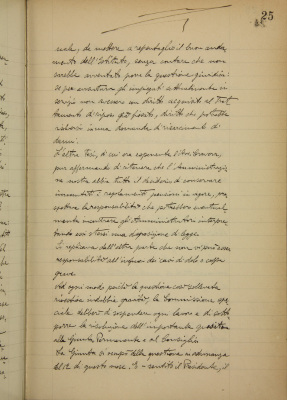 25
nale, da mettere a repentaglio il buon anda
mento dell'Istituto, senza contare che non
sarebbe avventato porre la questione giuridica
se per avventura gli impiegati attualmente in
servizio non avessero un diritto acquisito al trat
tamento di riposo già fissato, diritto che potrebbe
risolversi in una domanda di risarcimento di
danni.
L'altra tesi, di cui era esponente l'Avv.
pur affermando di ritenere che l'Amministrazio
ne nostra abbia tutto il diritto di conservare
immutati i regolamenti pensioni in vigore, pro
spettava la responsabilità che potrebbero eventual
mente incontrare gli Amministratori interpre
tando così o tosi una disposizione di legge.
Si replicava dall'altra parte che non vi può essere
responsabilità all'infuori dei casi di dolo o colpa
grave.
Ad ogni modo poiché la questione così sollevata
rivestiva indubbia gravità, la Commissione spe
ciale deliberò di sospendere ogni lavoro e di sotto
porre la risoluzione dell'importante quesito
alla Giunta Permanente e al Consiglio.
La Giunta si occupò della questione in adunanza
del 12 di questo mese. Si è sentito il Presidente, il